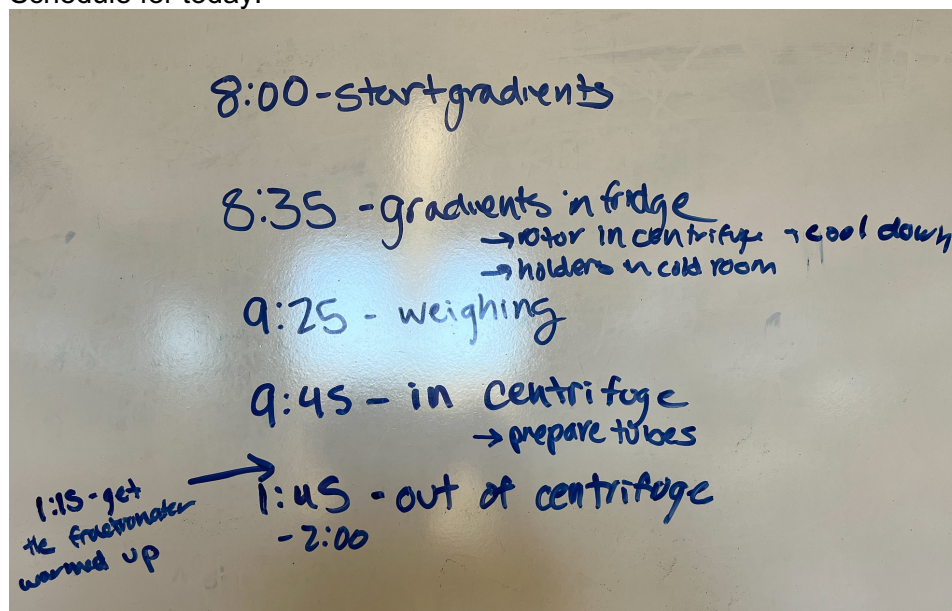 Schedule for today:
8:00 - start gradients
8:35 - gradients in fridge
→ rotor in centrifuge → cool down
→ holders in cold room
9:25 - weighing
9:45 - in centrifuge
→ prepare tubes
1:15 - get
the fractionater
warmed up
1:45 - out of centrifuge
- 2:00